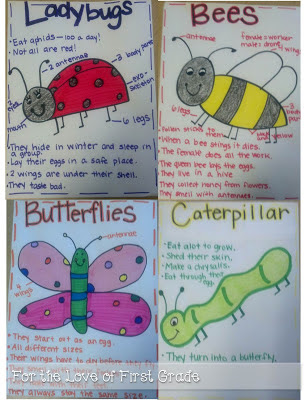 Ladybugs
• Eat aphids—100 a day!
• Not all are red!
2 antennae
3 body parts
exo-
skeleton
eyes
mouth
6 legs
• They hide in winter and sleep in
a group.
• Lay their eggs in a safe place.
• 2 wings are under their shell.
• They taste bad.
Bees
antennae
female=worker
male=drone
wings
6 legs
3
body
parts
black and
yellow
• Pollen sticks to them
• When a bee stings it dies.
• The female does all the work.
• The queen bee lays the eggs.
• They live in a hive
• They collect honey from flowers.
• They smell with antennae.
Butterflies
antennae
4
wings
• They start out as an egg.
• All different sizes
• Their wings have to dry before they
• They always stay the same size.
Caterpillar
• Eat alot to grow.
• Shed their skin.
• Make a chrysalis.
• Eat through their
egg.
• They turn into a butterfly.
For the Love of First Grade